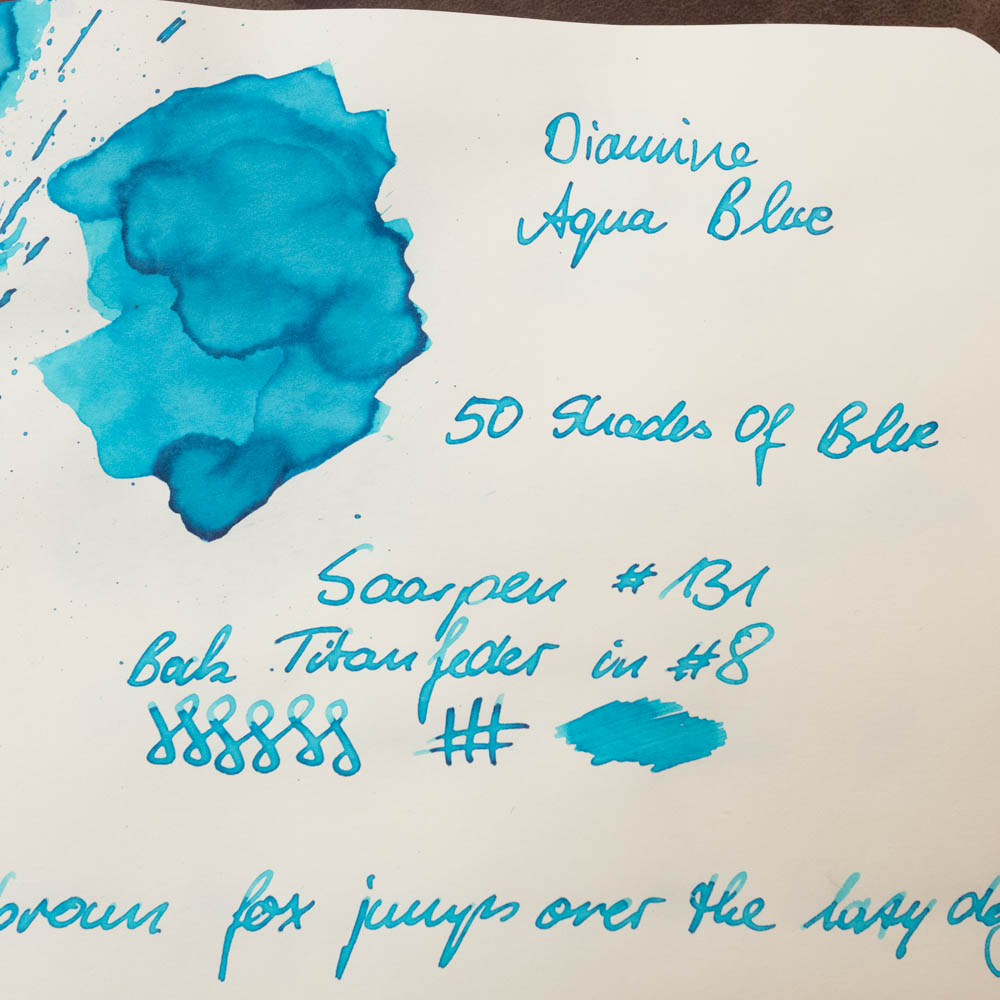 Diamine
Aqua Blue
50 Shades Of Blue
Saarpen #131
Bock Titanfeder in #8
brown fox jumps over the lazy do